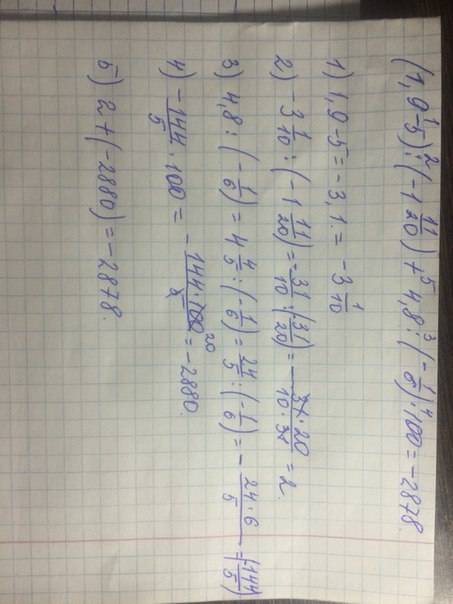 (1,9-5):(-1 11/20)+4,8:(-1/6)·100=-2878.
1) 1,9-5=-3,1.=-3 1/10
2) -3 1/10:(-1 11/20)=-31/10:(31/20)=-31·20/10·31=2.
3) 4,8:(-1/6)=4 4/5:(-1/6)=24/5:(-1/6)=-24·6/5=(-144/5)
4) -144/5·100=-144·100/5=-2880.
5) 2+(-2880)=-2878.